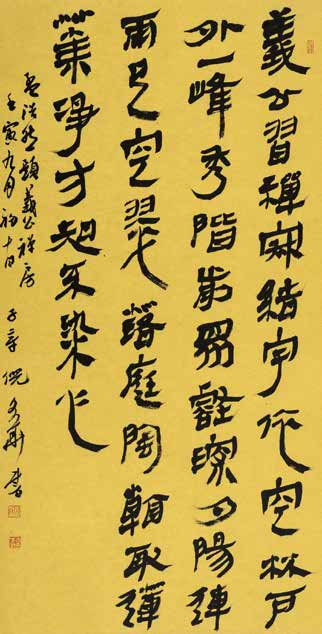 義公習禪寂結宇依空林戶
外一峰秀階前眾壑深夕陽連
雨足空翠落庭陰看取蓮
華淨方知不染心
孟浩然題義公禪房
壬寅九月初十日 子 倪 書